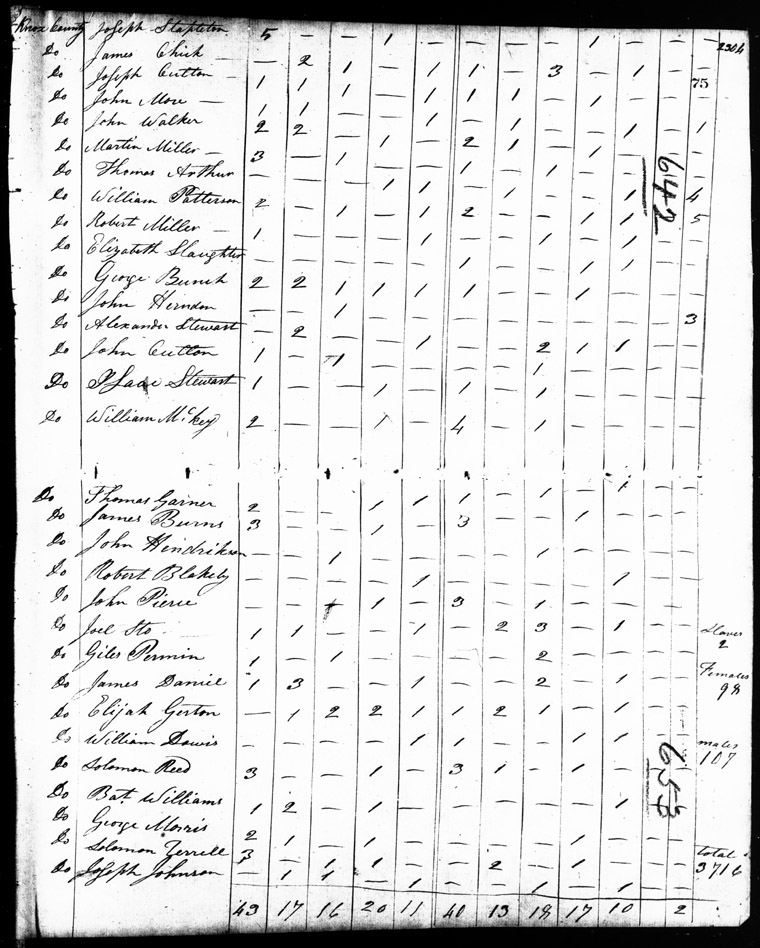 Knox County Joseph Stapleton 5 — — 1 — — — — 1 — —
Do James Chick — 2 1 — 1 1 — 3 — 1 — 230½
Do Joseph Cutton 1 1 1 — 1 1 1 — 1 — — 75
Do John More 1 1
Do John Walker 2 2 — 1 — 2 1 — 1 — 1
Do Martin Miller 3 — 1
Do Thomas Arthur — — — 1 1
Do William Patterson 2 — 1 — 1 2 — — 1 1 4
Do Robert Miller 1 5
642
Do Elizabeth Slaughter
Do George Bunch 2 2 1 1 1 1 — — 1 — —
Do John Herndon — — 1
Do Alexander Stewart — 2 — — 1 3
Do John Cutton 1 — 1 — — — — 2 1 1
Do Isaac Stewart 1 — — 1 — 1 — 1 — — —
Do William McKey 2 — — 1 — 4 — 1 — — —
Do Thomas Garner 2 — — 1 1 1 — 1 — 1 —
Do James Burns 3 — — 1 — 3 — — 1 — —
Do John Hendrikson — — 1 — — — — 1 — — —
Do Robert Blakely — — — — 1 — — — — 1 —
Do John Pierce — — 1 — 3 — 1 — — —
Do Joel Sto 1 1 — — 1 — 2 3 — 1 — Slaves
2
Do Giles Permin 1 — 1 — — — — 2 — — —
Females
Do James Daniel 1 3 — — 1 — — 2 — 1 — 98
Do Elijah Gerton — 1 2 2 1 1 2 1 — 1 —
Do William Dawis — — — — 1 1 — — 1 1 — males
107
653
Do Solomon Reed 3 — — 1 — 3 1 — 1 — —
Do Bat. Williams 1 2 — 1 — — — — — 1 —
Do George Morris 2 1 — 1
Do Solomon Terrell 3 total
Do Joseph Johnson — 1 1 3716
43 17 16 20 11 40 13 18 17 10 2